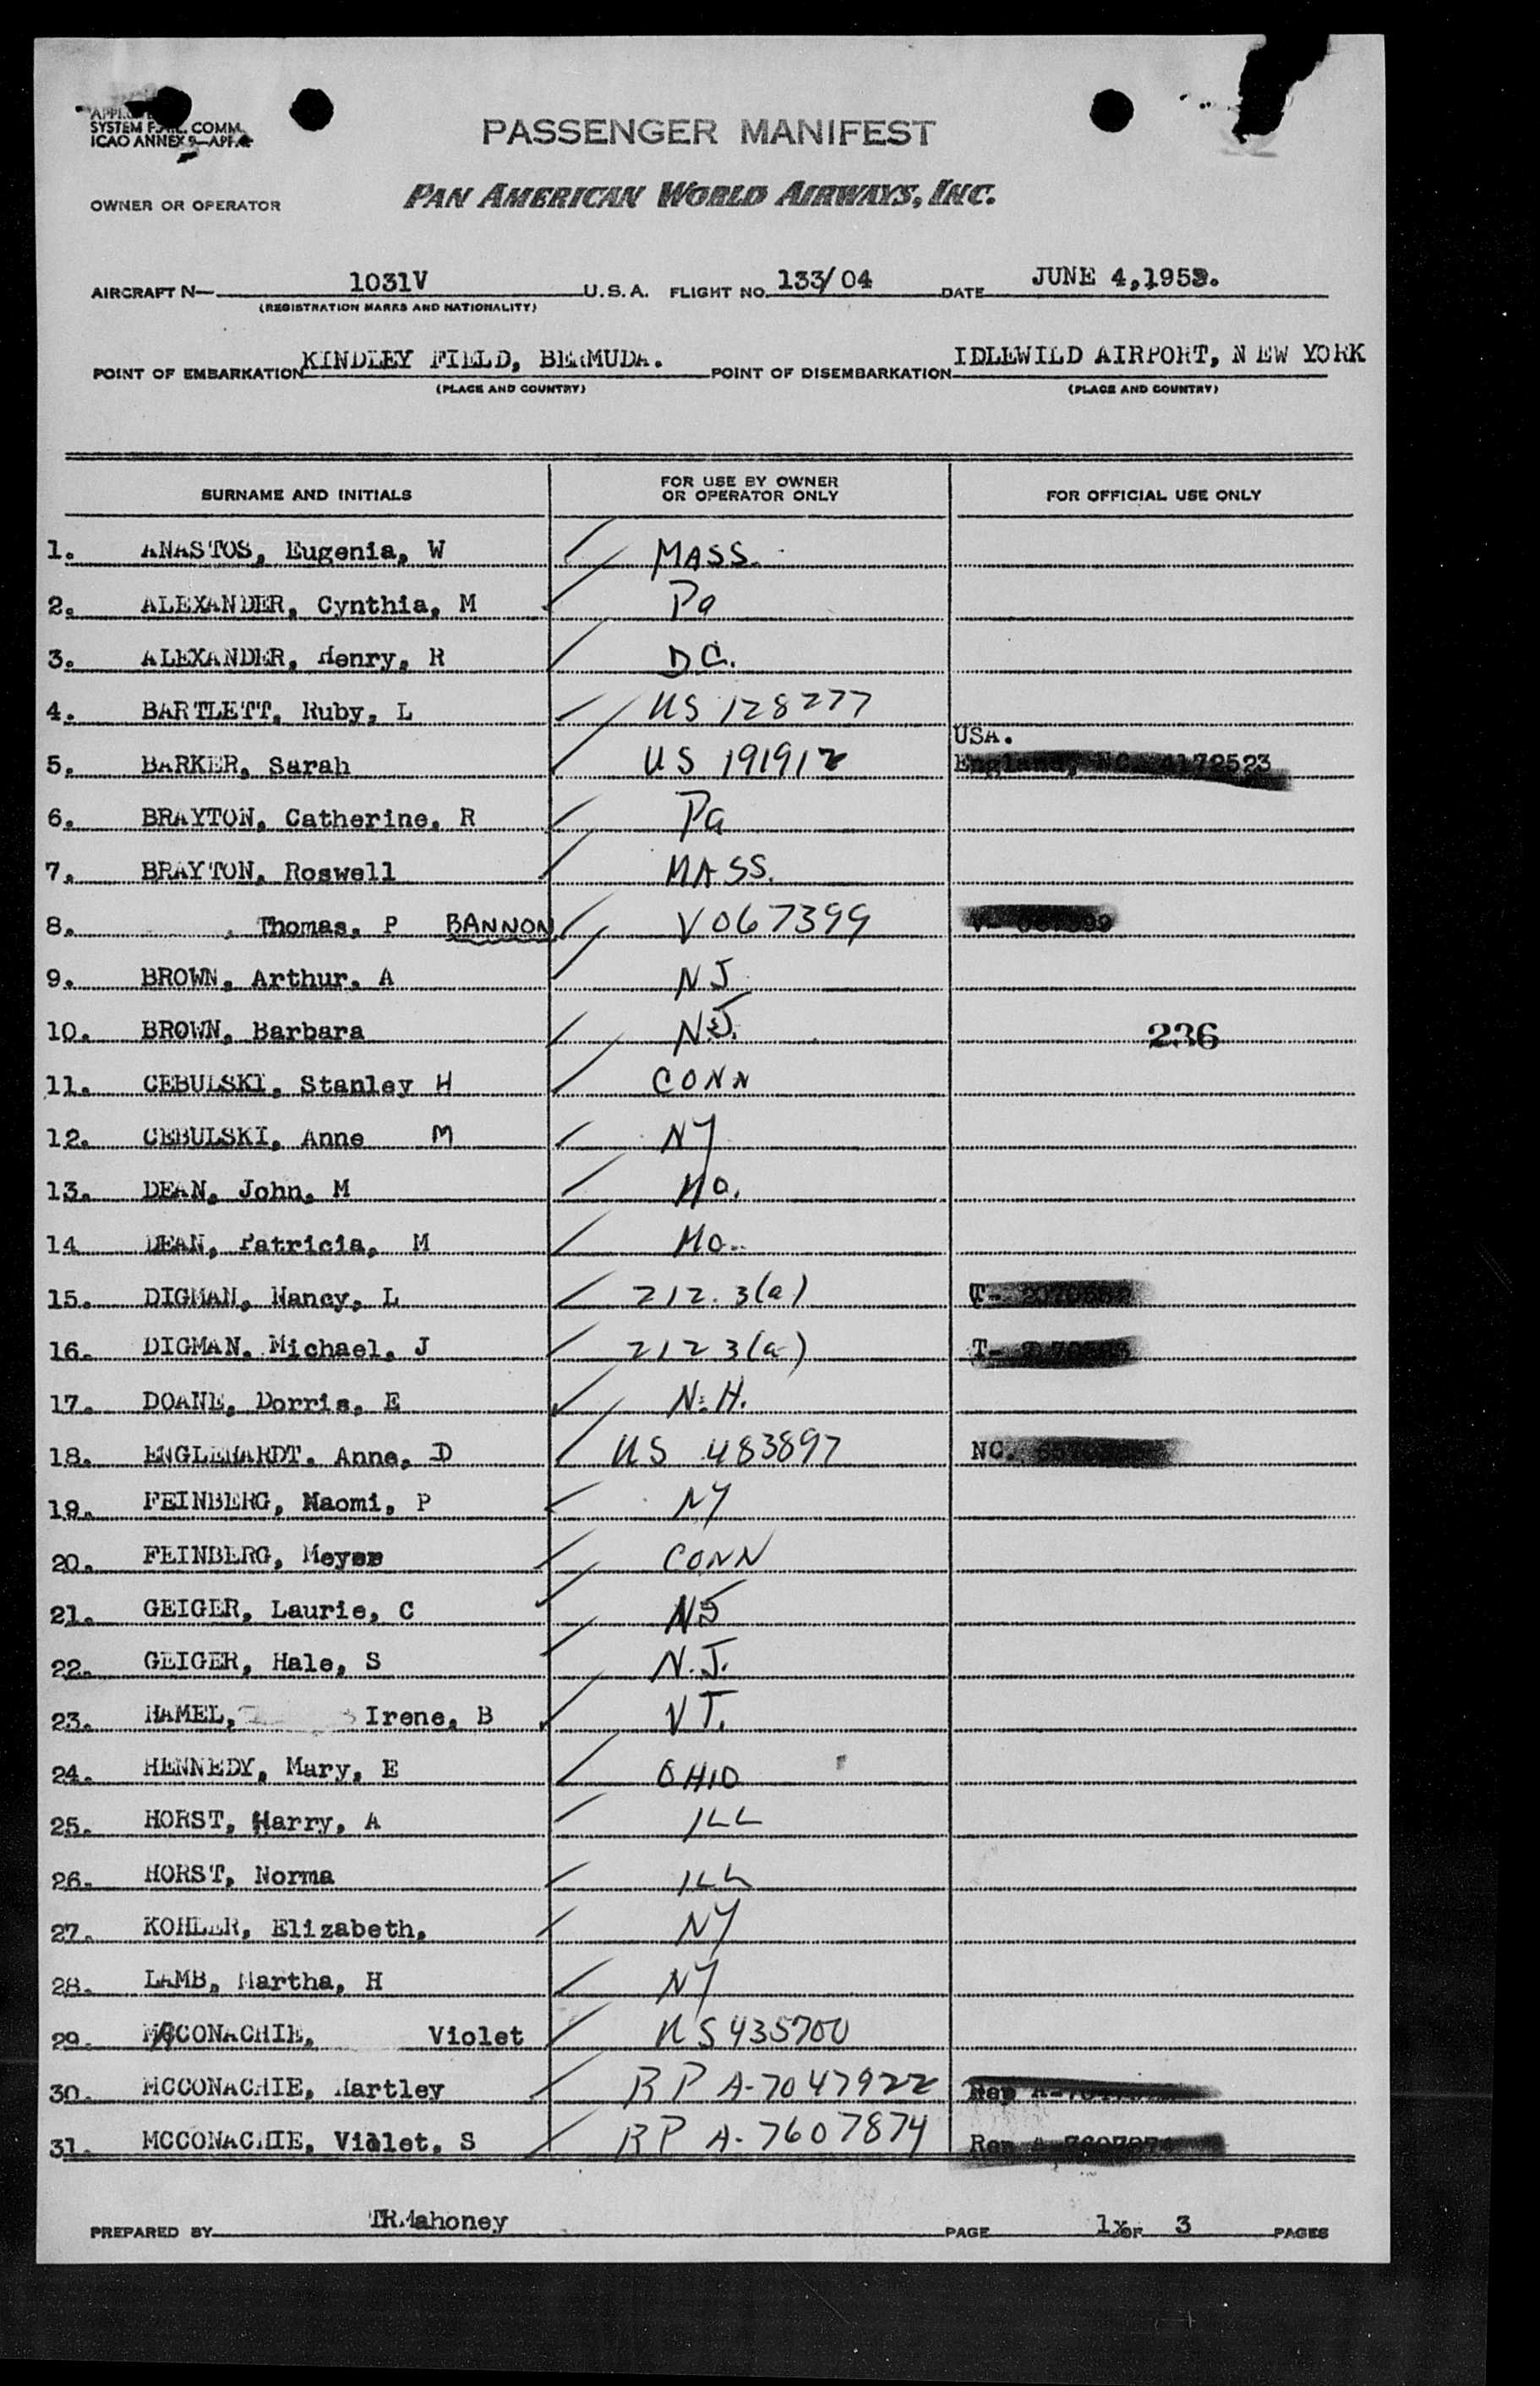 SYSTEM COMM.
ICAO ANNEX 9—APP.
PASSENGER MANIFEST
OWNER OR OPERATOR PAN AMERICAN WORLD AIRWAYS, INC.
AIRCRAFT N— 1031V U.S.A. FLIGHT NO. 133/04 DATE JUNE 4, 1953.
(REGISTRATION MARKS AND NATIONALITY)
POINT OF EMBARKATION KINDLEY FIELD, BERMUDA. POINT OF DISEMBARKATION IDLEWILD AIRPORT, N EW YORK
(PLACE AND COUNTRY) (PLACE AND COUNTRY)
SURNAME AND INITIALS FOR USE BY OWNER OR OPERATOR ONLY FOR OFFICIAL USE ONLY
1. ANASTOS, Eugenia, W MASS.
2. ALEXANDER, Cynthia, M Pa
3. ALEXANDER, Henry, R D C.
4. BARTLETT, Ruby, L US 128277
USA.
5. BARKER, Sarah US 191912 England, NC. 4172523
6. BRAYTON, Catherine, R Pa
7. BRAYTON, Roswell MASS.
8. , Thomas, P BANNON V067399
9. BROWN, Arthur, A NJ
10. BROWN, Barbara N.J. 236
11. CEBULSKI, Stanley H CONN
12. CEBULSKI, Anne M NY
13. DEAN, John, M MO.
14 DEAN, Patricia, M MO.
15. DIGMAN, Nancy, L 212.3(a) T-
16. DIGMAN, Michael, J 212 3(a) T-
17. DOANE, Dorris, E N.H.
18. ENGLEHARDT, Anne, D US 483897 NC.
19. FEINBERG, Naomi, P NY
20. FEINBERG, Meyer CONN
21. GEIGER, Laurie, C NJ
22. GEIGER, Hale, S N.J.
23. HAMEL, Irene, B VT.
24. HENNEDY, Mary, E OHIO
25. HORST, Harry, A ILL
26. HORST, Norma ILL
27. KOHLER, Elizabeth, NY
28. LAMB, Martha, H NY
29. MCCONACHIE, Violet US435700
30. MCCONACHIE, Hartley RP A-7047922 Rep
31. MCCONACHIE, Violet, S RP A-7607874 Rep A-7607874
PREPARED BY TRMahoney PAGE 1x OF 3 PAGES